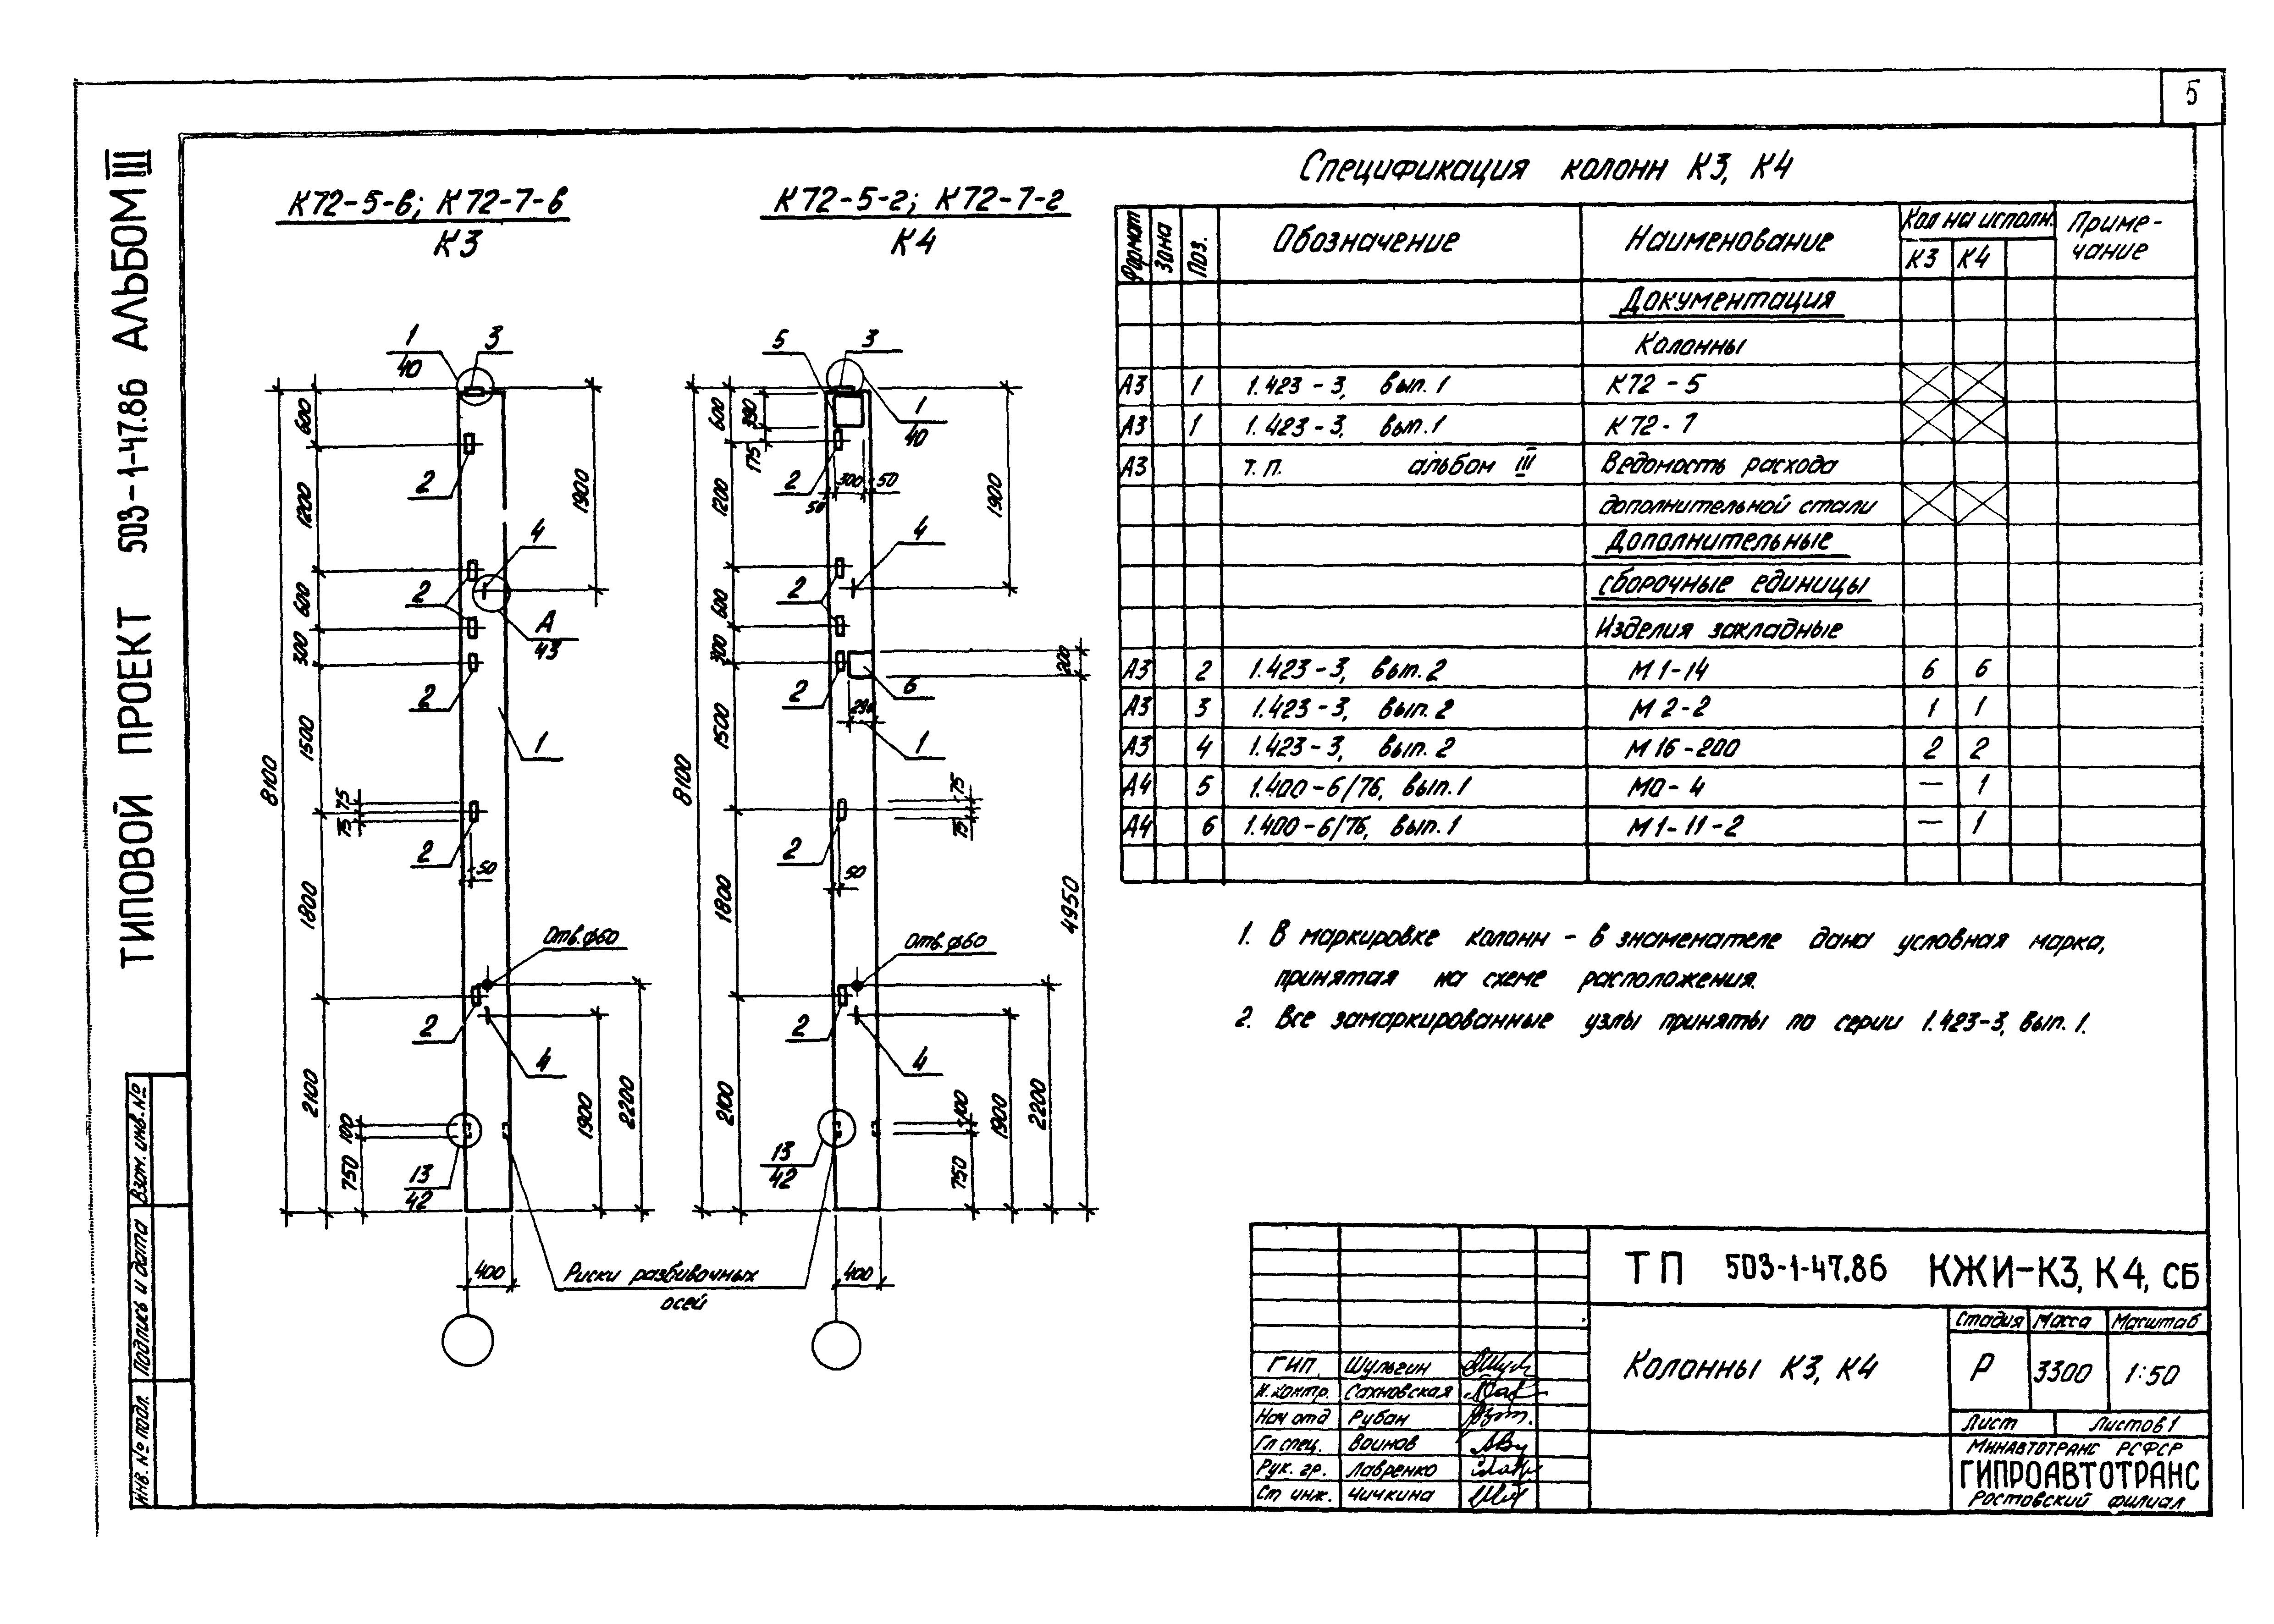 5
ТИПОВОЙ ПРОЕКТ 503-1-47.86 АЛЬБОМ III
К72-5-в; К72-7-в
К3
К72-5-г; К72-7-г
К4
1
40
3
600
2
1200
1900
4
2
600
А
43
300
2
1500
1
8100
75
75
2
50
1800
Отв.ф60
2
4
2100
100
750
1900
2200
13
42
400
5
3
600
390
175
1
40
2
300
50
50
1200
1900
4
2
600
300
200
2
6
290
1500
1
8100
75
75
2
50
1800
4950
Отв.ф60
2
4
2100
100
750
1900
2200
13
42
400
Риски разбивочных
осей
Спецификация колонн К3, К4
Формат Зона Поз. Обозначение Наименование Кол на исполн. Приме-
К3 К4 чание
Документация
Колонны
А3 1 1.423-3, вып.1 К72-5
А3 1 1.423-3, вып.1 К72-7
А3 т.п. альбом III Ведомость расхода
дополнительной стали
Дополнительные
сборочные единицы
Изделия закладные
А3 2 1.423-3, вып.2 М1-14 6 6
А3 3 1.423-3, вып.2 М2-2 1 1
А3 4 1.423-3, вып.2 М16-200 2 2
А4 5 1.400-6/76, вып.1 М0-4 — 1
А4 6 1.400-6/76, вып.1 М1-11-2 — 1
1. В маркировке колонн - в знаменателе дана условная марка,
принятая на схеме расположения.
2. Все замаркированные узлы приняты по серии 1.423-3, вып.1.
Взам. инв. №
Подпись и дата
Инв. № подл.
ТП 503-1-47.86 КЖИ-К3, К4, СБ
Колонны К3, К4
Стадия Масса Масштаб
Р 3300 1:50
Лист Листов 1
Минавтотранс РСФСР
ГИПРОАВТОТРАНС
Ростовский филиал
ГИП Шульгин
Н.контр. Сахновская
Нач отд Рубан
Гл спец. Воинов
Рук. гр. Лавренко
Ст инж. Чичкина